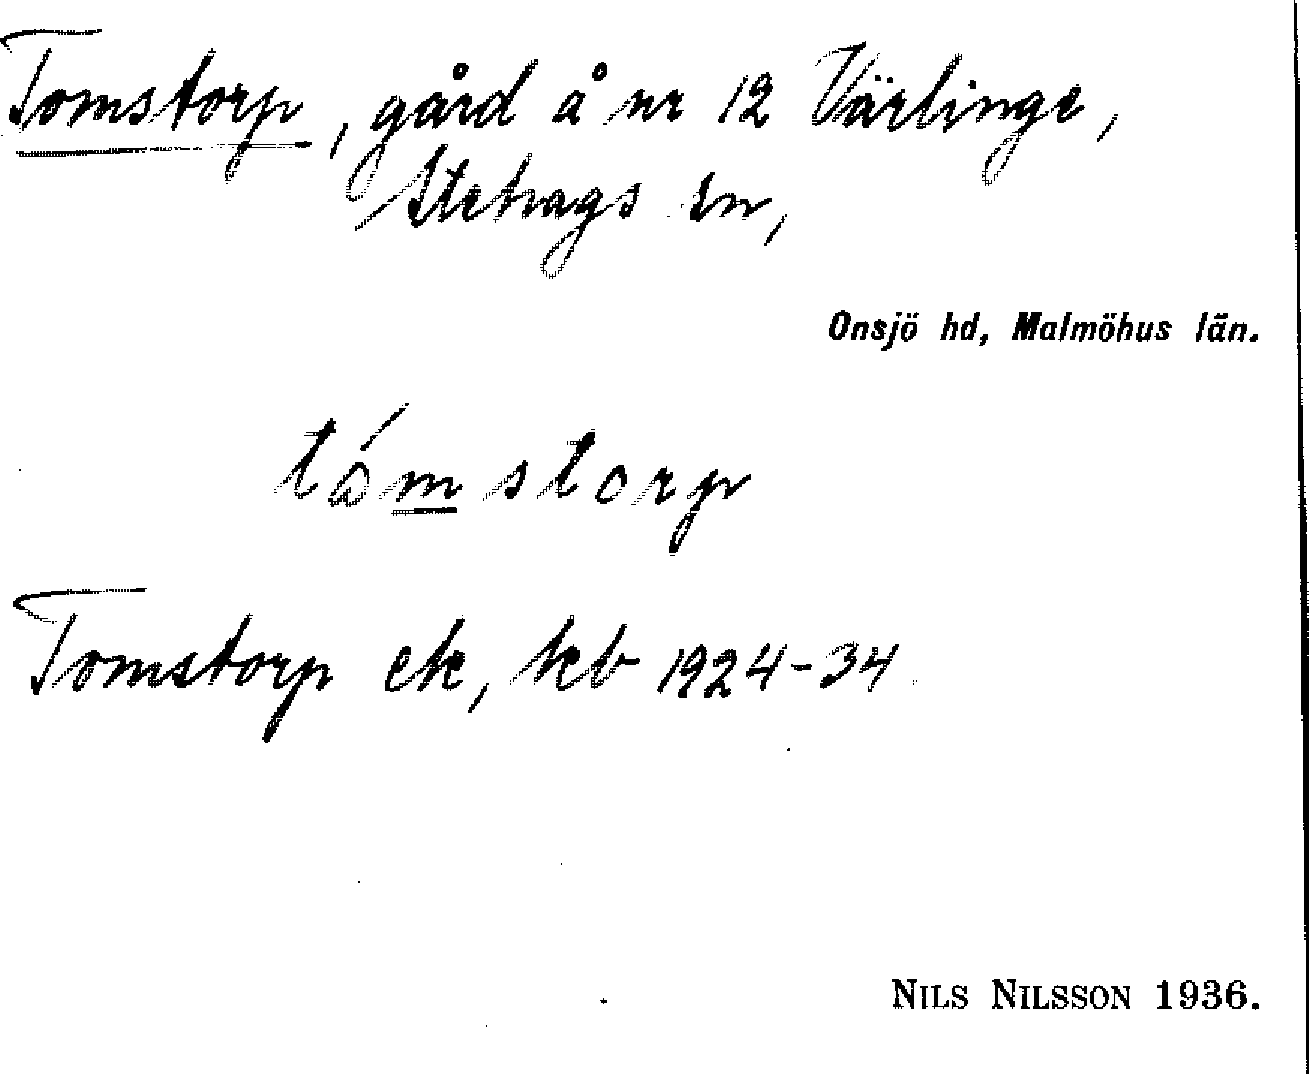 Tomstorp, gård å nr 12 Värlinge,
Stehags sn,
Onsjö hd, Malmöhus län.
tómstorp
Tomstorp ek, kb 1924-34
NILS NILSSON 1936.